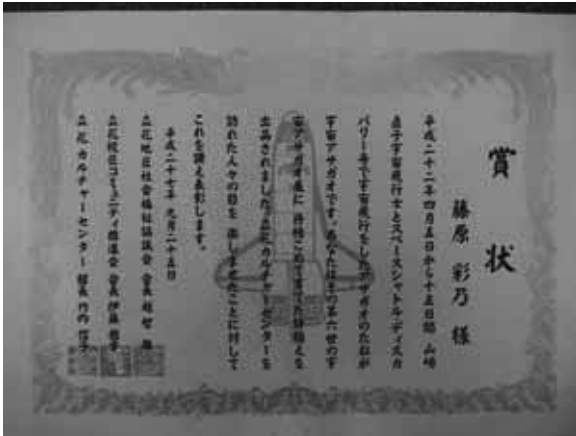 賞状
藤原 彩乃 様
平成二十二年四月五日から十五日間 山崎
直子宇宙飛行士とスペースシャトル・ディスカ
バリー号で宇宙飛行をしたアサガオのたねが
宇宙アサガオです。あなたはその第六世の宇
宙アサガオ展に 丹精こめて育てた鉢植えを
出品されました。立花カルチャーセンターを
訪れた人々の目を 楽しませたことに対して
これを讃え表彰します。
平成二十七年 九月二十五日
立花地区社会福祉協議会 会長 越智
立花校区コミュニティ推進会 会長 伊藤
立花カルチャーセンター 館長 竹内